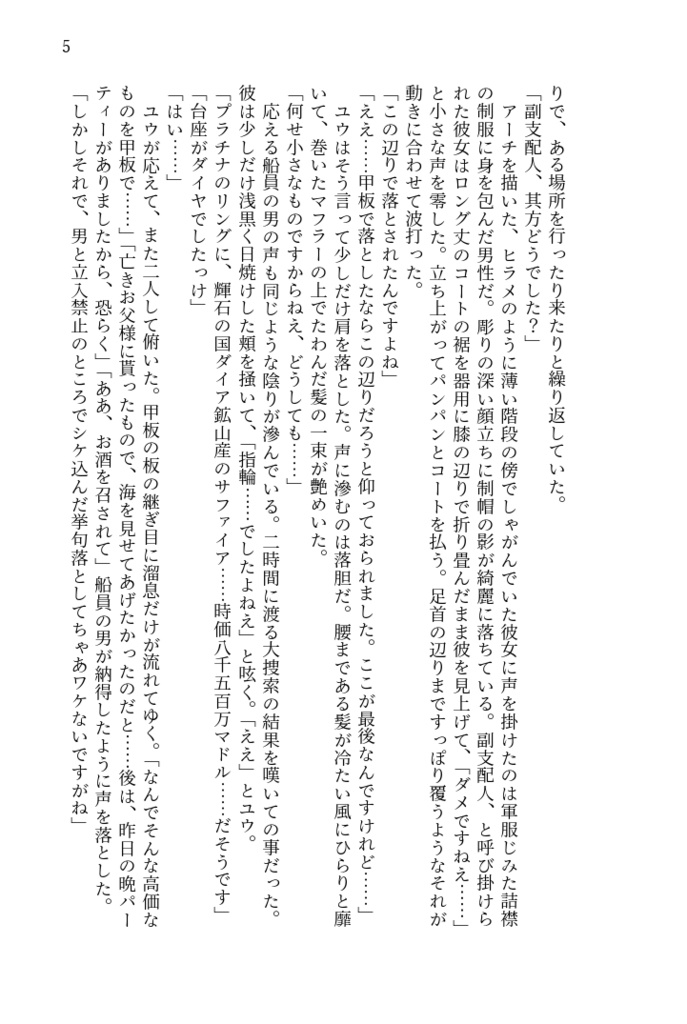 5
りで、ある場所を行ったり来たりと繰り返していた。
「副支配人、其方どうでした？」
　アーチを描いた、ヒラメのように薄い階段の傍でしゃがんでいた彼女に声を掛けたのは軍服じみた詰襟
の制服に身を包んだ男性だ。彫りの深い顔立ちに制帽の影が綺麗に落ちている。副支配人、と呼び掛けら
れた彼女はロング丈のコートの裾を器用に膝の辺りで折り畳んだまま彼を見上げて、「ダメですねえ……」
と小さな声を零した。立ち上がってパンパンとコートを払う。足首の辺りまですっぽり覆うようなそれが
動きに合わせて波打った。
「この辺りで落とされたんですよね」
「ええ……甲板で落としたならこの辺りだろうと仰っておられました。ここが最後なんですけれど……」
　ユウはそう言って少しだけ肩を落とした。声に滲むのは落胆だ。腰まである髪が冷たい風にひらりと靡
いて、巻いたマフラーの上でたわんだ髪の一束が艶めいた。
「何せ小さなものですからねえ、どうしても……」
　応える船員の男の声も同じような陰りが滲んでいる。二時間に渡る大捜索の結果を嘆いての事だった。
彼は少しだけ浅黒く日焼けした頬を掻いて、「指輪……でしたよねえ」と呟く。「ええ」とユウ。
「プラチナのリングに、輝石の国ダイア鉱山産のサファイア……時価八千五百万マドル……だそうです」
「台座がダイヤでしたっけ」
「はい……」
　ユウが応えて、また二人して俯いた。甲板の板の継ぎ目に溜息だけが流れてゆく。「なんでそんな高価な
ものを甲板で……」「亡きお父様に貰ったもので、海を見せてあげたかったのだと……後は、昨日の晩パー
ティーがありましたから、恐らく」「ああ、お酒を召されて」船員の男が納得したように声を落とした。
「しかしそれで、男と立入禁止のところでシケ込んだ挙句落としてちゃあワケないですがね」